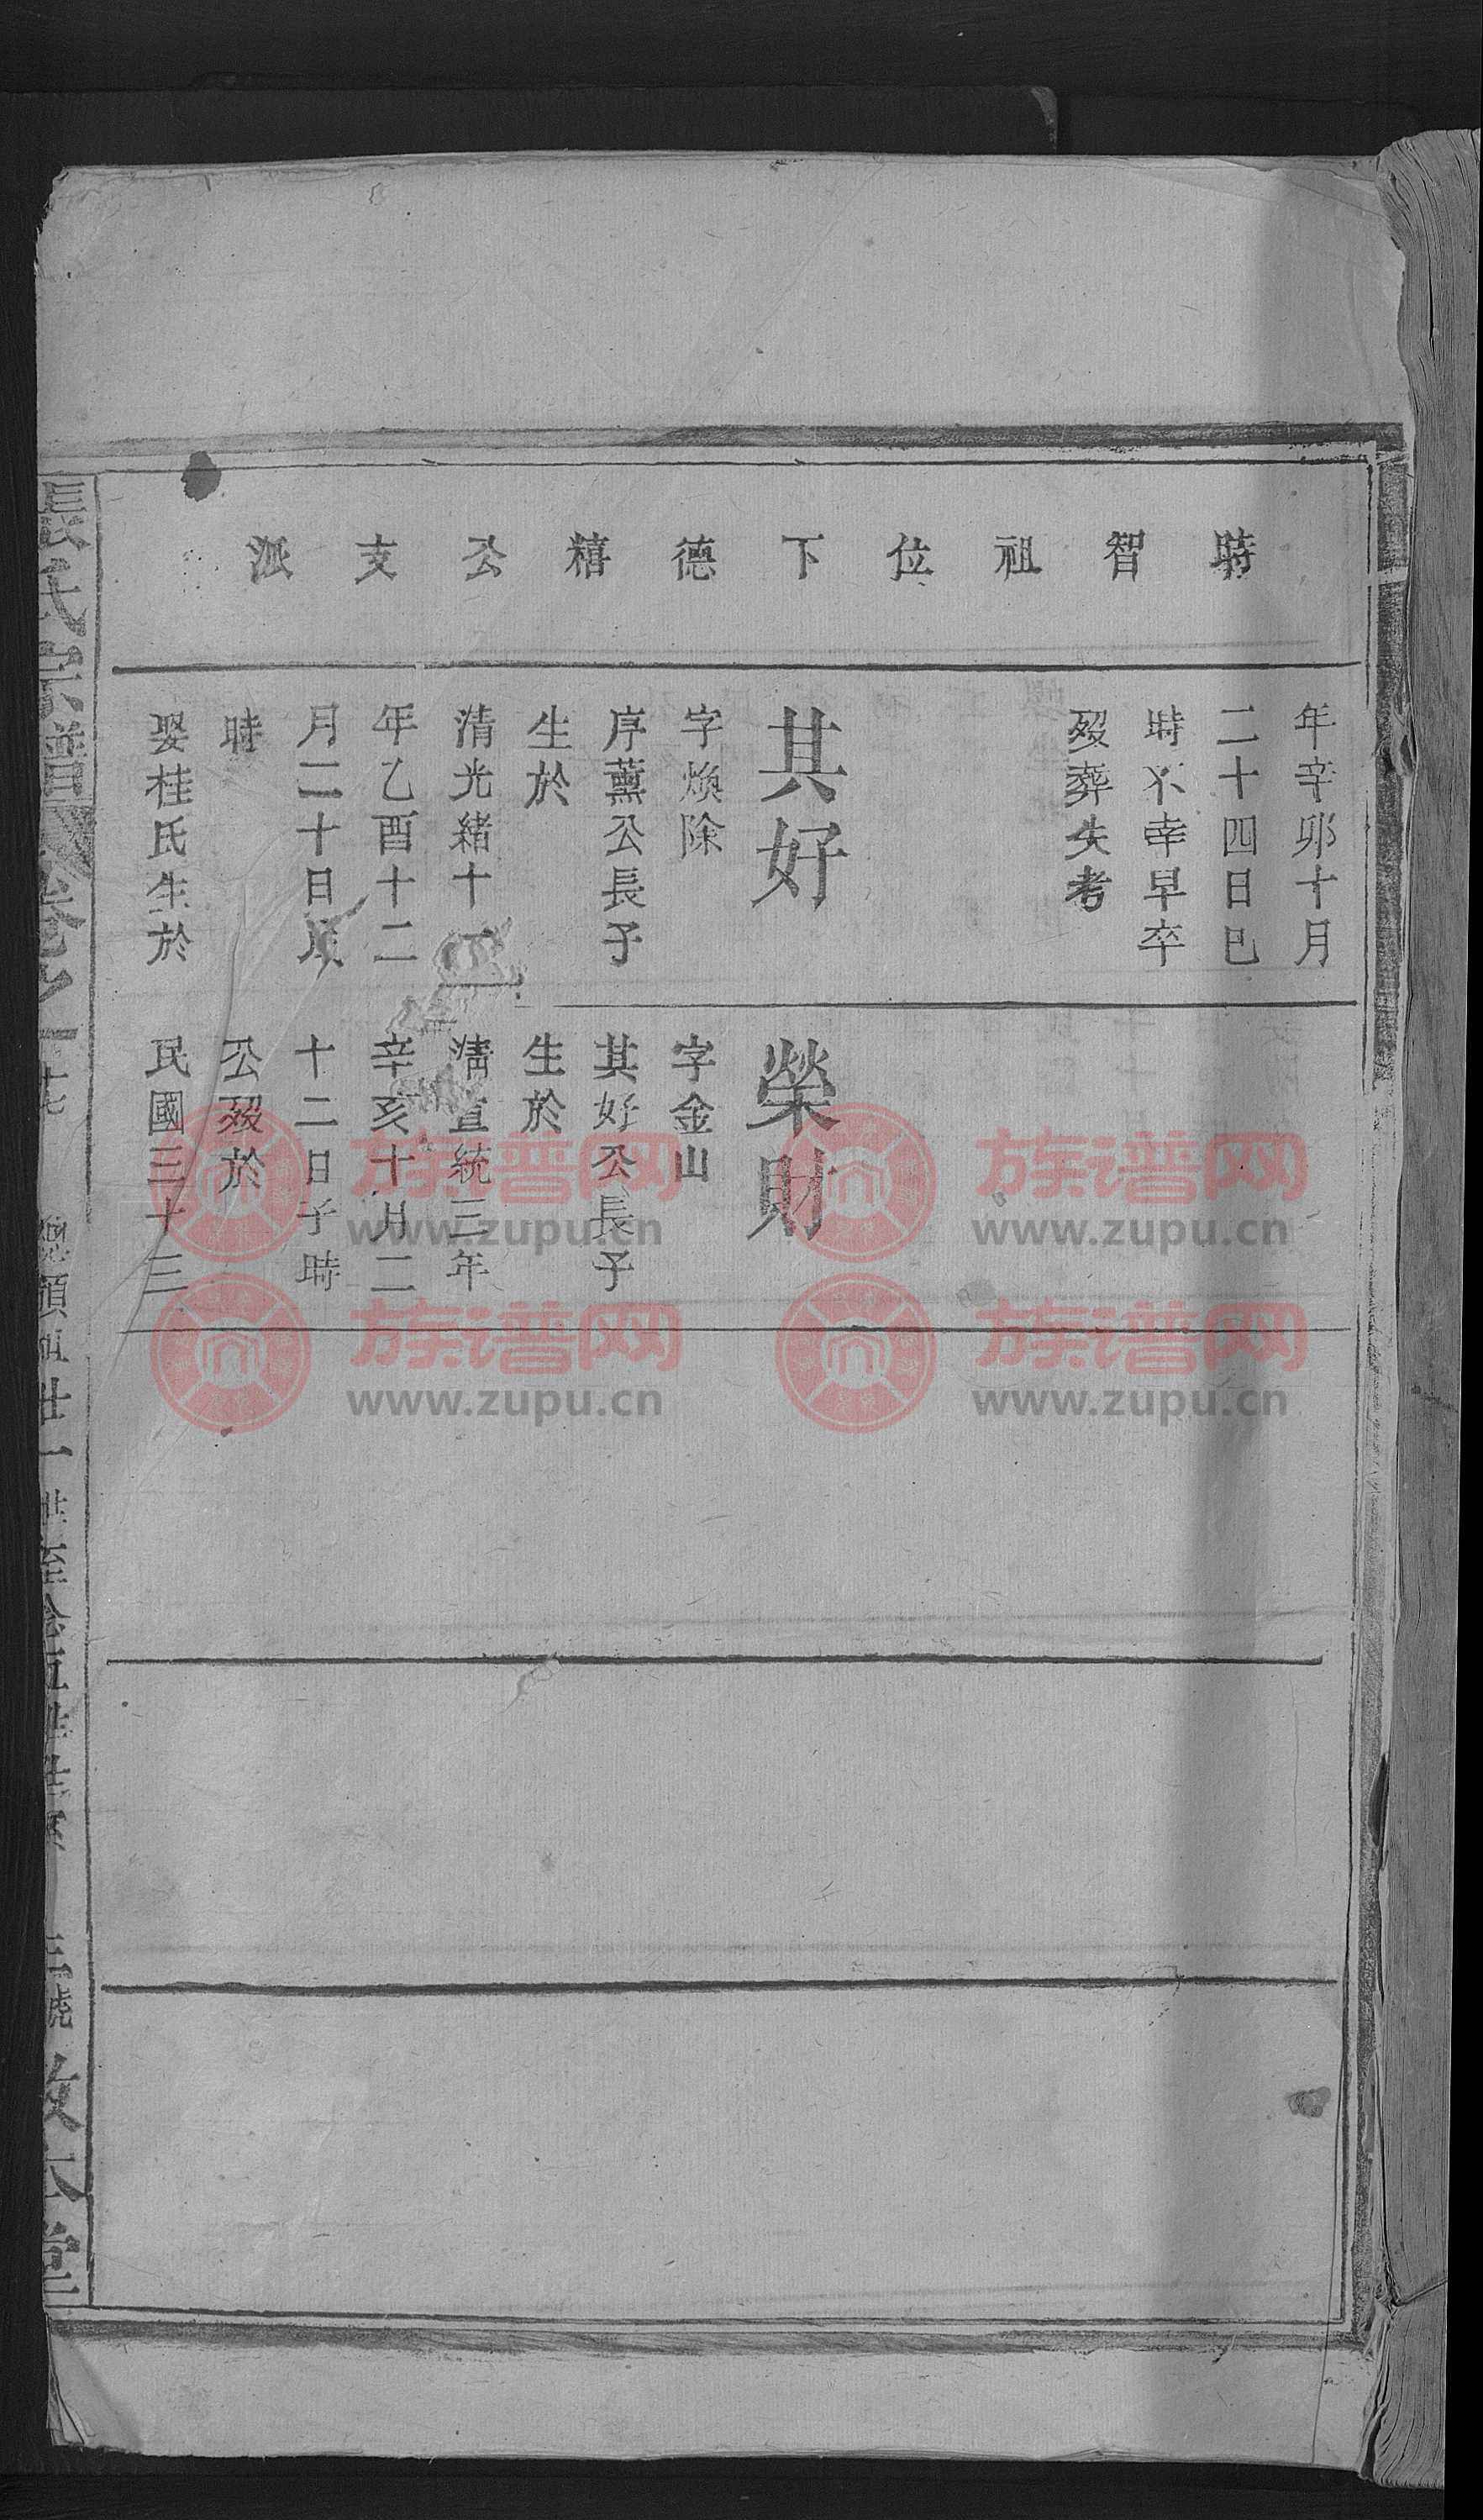 時智祖位下德糦公支派
年辛卯十月
二十四日巳
時不幸早卒
歿葬失考
其好
字煥除
序薰公長子
生於
清光緒十一
年乙酉十二
月二十日辰
時
娶桂氏生於
榮財
字金山
其好公長子
生於
清宣統三年
辛亥十月二
十二日子時
公歿於
民國三十三
張氏宗譜
卷之一
敦本堂
族谱网
www.zupu.cn
族谱网
www.zupu.cn
族谱网
www.zupu.cn
族谱网
www.zupu.cn